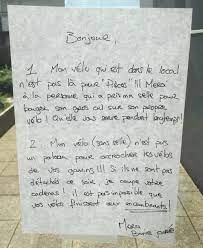 Bonjour,
1. Mon vélo qui est dans le local
n'est pas là pour "pièces" !!! Merci
à la personne qui a pris ma selle pour
bouger son gros cul sur son propre
vélo ! Qu'elle vous serve longtemps !
2. Mon vélo (sans selle) n'est pas
un poteau pour accrocher les vélos
de vos gamins !!! S'ils ne sont pas
détachés ce soir, je coupe votre
cadenas ! il est pas impossible que
vos vélos finissent aux encombrants !
Merci
Bonne journée